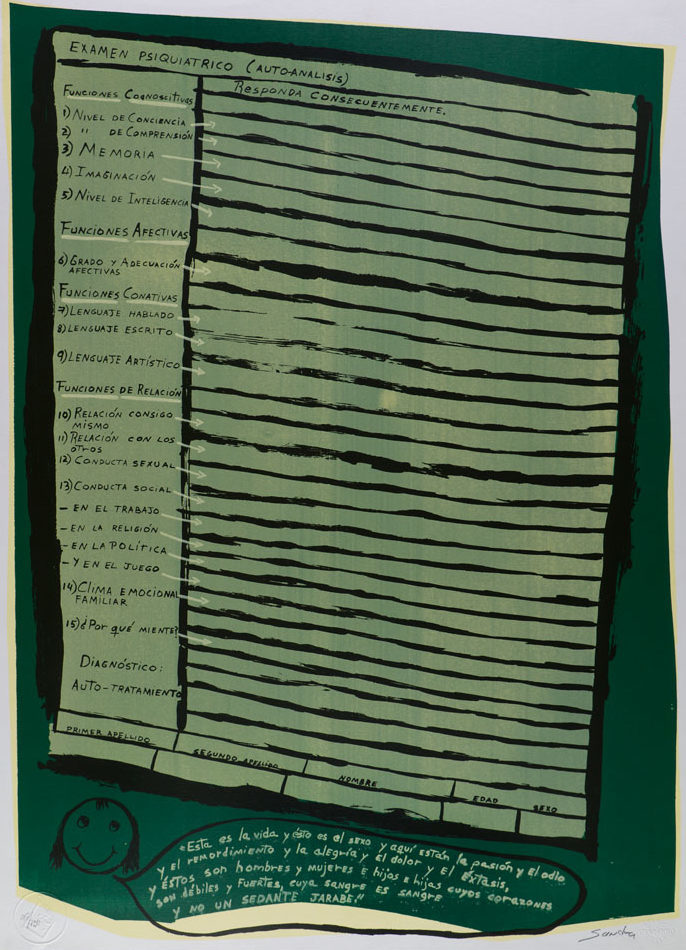 EXAMEN PSIQUIATRICO (AUTO-ANALISIS)
RESPONDA CONSECUENTEMENTE.
FUNCIONES COGNOSCITIVAS
1) NIVEL DE CONCIENCIA
2) " DE COMPRENSIÓN
3) MEMORIA
4) IMAGINACIÓN
5) NIVEL DE INTELIGENCIA
FUNCIONES AFECTIVAS
6) GRADO Y ADECUACIÓN
AFECTIVAS
FUNCIONES CONATIVAS
7) LENGUAJE HABLADO
8) LENGUAJE ESCRITO
9) LENGUAJE ARTÍSTICO
FUNCIONES DE RELACIÓN
10) RELACIÓN CONSIGO
MISMO
11) RELACIÓN CON LOS
OTROS
12) CONDUCTA SEXUAL
13) CONDUCTA SOCIAL
- EN EL TRABAJO
- EN LA RELIGIÓN
- EN LA POLÍTICA
- Y EN EL JUEGO
14) CLIMA EMOCIONAL
FAMILIAR
15) ¿POR QUÉ MIENTE?
DIAGNÓSTICO:
AUTO-TRATAMIENTO
PRIMER APELLIDO
SEGUNDO APELLIDO
NOMBRE
EDAD
SEXO
"Esta es la vida y ésto es el sexo y aquí están la pasión y el odio
y el remordimiento y la alegría y el dolor y el éxtasis,
y éstos son hombres y mujeres e hijos e hijas cuyos corazones
son débiles y fuertes, cuya sangre es sangre
y no un sedante jarabe."
Sandra